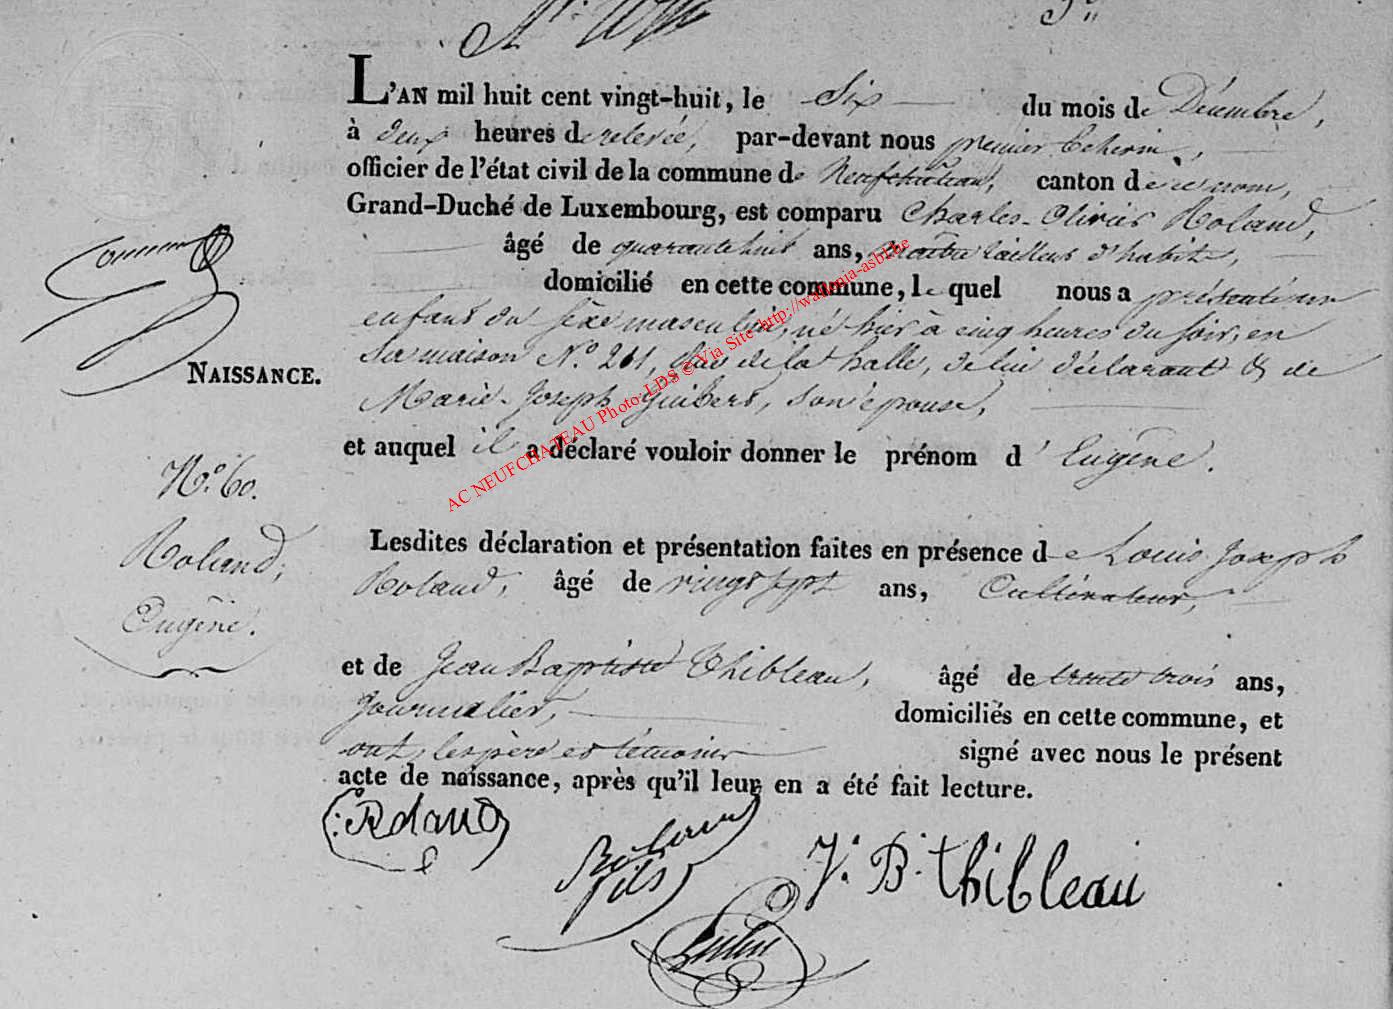 L'AN mil huit cent vingt-huit, le Six du mois de Décembre,
à deux heures de relevée, par-devant nous premier Echevin,
officier de l'état civil de la commune de Neufchateau, canton de ce nom,
Grand-Duché de Luxembourg, est comparu Charles-Olivier Roland,
âgé de quarante huit ans, maitre tailleur d'habits,
domicilié en cette commune, lequel nous a présenté un
enfant du sexe masculin, né hier à cinq heures du soir, en
sa maison N.o 201, de la halle, de lui déclarant & de
Marie-Joseph Guibert, son épouse,
NAISSANCE.
et auquel il a déclaré vouloir donner le prénom d'Eugène.
N.o 60.
Roland,
Eugène.
Lesdites déclaration et présentation faites en présence de Louis Joseph
Roland, âgé de vingt sept ans, Cultivateur,
et de Jean Baptiste Thibleau, âgé de trente trois ans,
journalier, domiciliés en cette commune, et
ont, les père et témoins signé avec nous le présent
acte de naissance, après qu'il leur en a été fait lecture.
Roland
Roland
fils
J. B. thibleau
AC NEUFCHATEAU Photo: LDS © Via Site http://wallonia-asbl.be